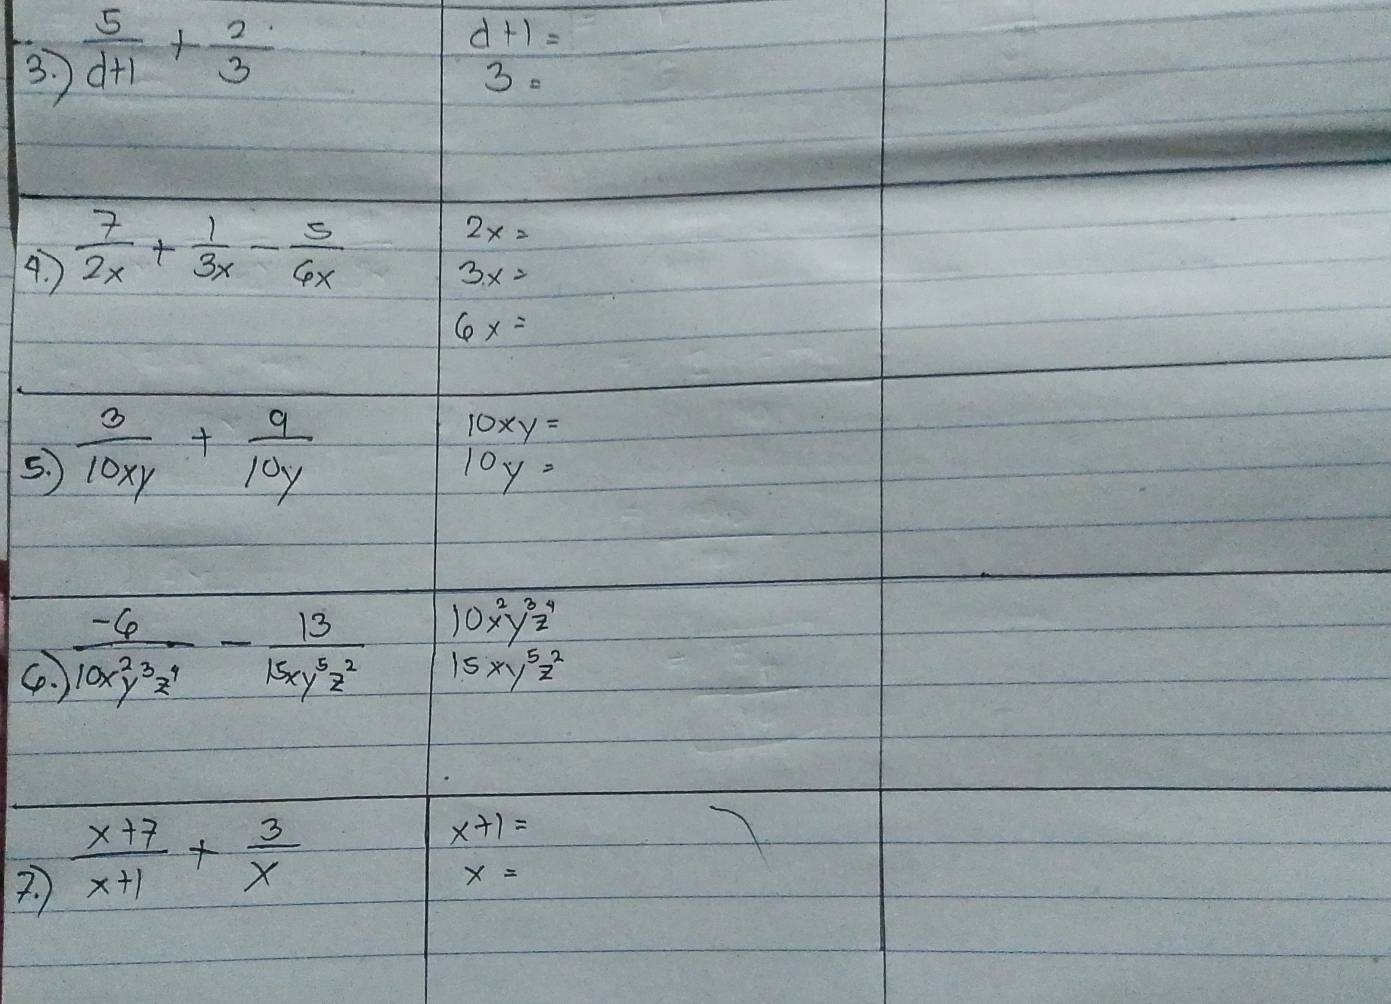 3.) 5/(d+1) + 2/3
d+1 =
3 =
4.) 7/2x + 1/3x - 5/6x
2x =
3x =
6x =
5.) 3/10xy + 9/10y
10xy =
10y =
6.) -6/10x²y³z⁴ - 13/15xy⁵z²
10x²y³z⁴
15xy⁵z²
7.) (x+7)/(x+1) + 3/x
x+1 =
x =